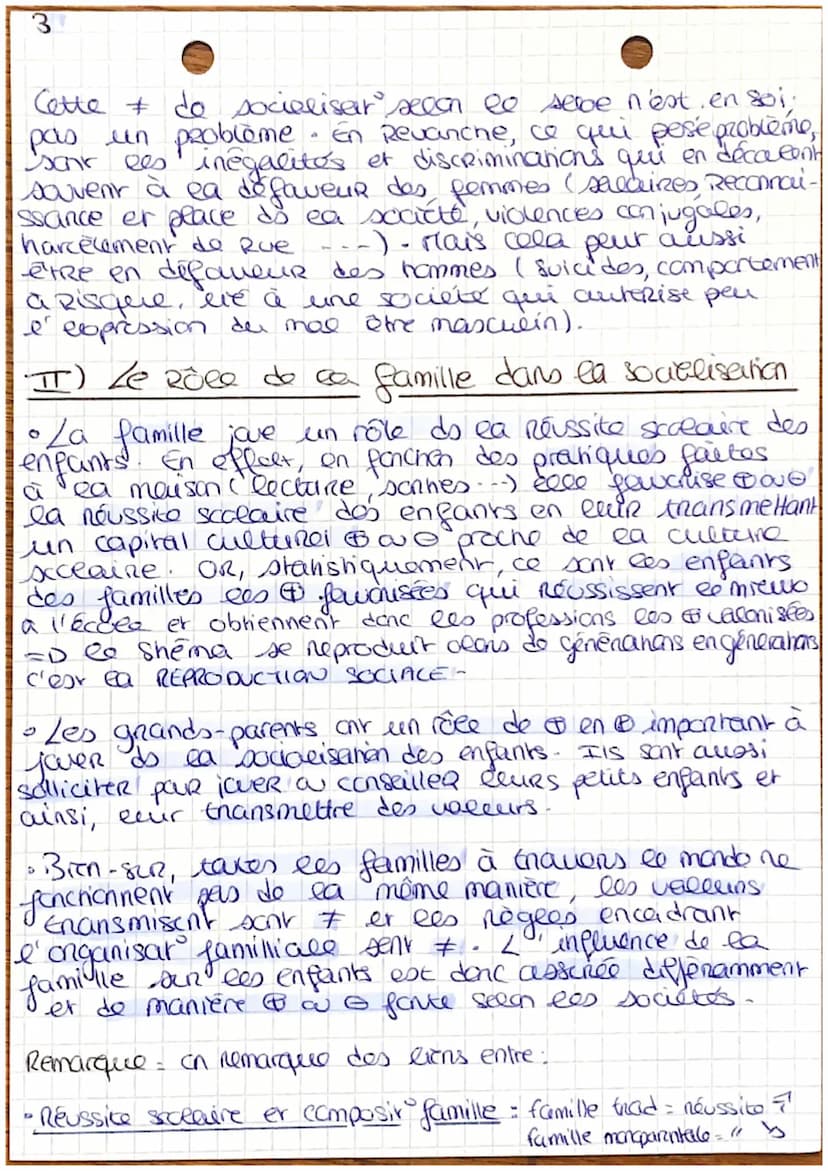 3
Cette ≠ de socialisat° selon le sexe n'est en soi
pas un problème. En Revanche, ce qui pose problème,
sont les inégalités et discriminations qui en découlent
souvent à la défaveur des femmes (salaires, Reconnai-
ssance et place ds la société, violences conjugales,
harcèlement de Rue ---). Mais cela peut aussi
être en défaveur des hommes (suicides, comportement
à Risque, lié à une société qui autorise peu
l'expression du mal être masculin).
II) Le Rôle de la famille dans la socialisation
• La famille joue un rôle ds la réussite scolaire des
enfants. En effet, en fonction des pratiques faites
à la maison (lecture, sorties...) elle favorise ⊕ ou ⊖
la réussite scolaire des enfants en leur transmettant
un capital culturel ⊕ ou ⊖ proche de la culture
scolaire. OR, statistiquement, ce sont les enfants
des familles les ⊕ favorisées qui réussissent le mieux
à l'école et obtiennent donc les professions les ⊕ valorisées
=D le shéma se reproduit alors de générations en générations
c'est la REPRODUCTION SOCIALE -
• Les grands-parents ont un rôle de ⊕ en ⊕ important à
jouer ds la socialisation des enfants. Ils sont aussi
solliciter pour jouer ou conseiller leurs petits enfants et
ainsi, leur transmettre des valeurs.
• Bien-sur, toutes les familles à travers le monde ne
fonctionnent pas de la même manière, les valeurs
transmisent sont ≠ et les règles encadrant
l'organisat° familliale sont ≠. L'influence de la
famille sur les enfants est donc assurée différamment
et de manière ⊕ ou ⊖ forte selon les sociétés.
Remarque = on remarque des liens entre :
• Réussite scolaire et composit° famille : famille trad = réussite ↗
famille monoparentale = " ↘